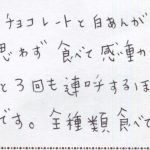 チョコレートと白あんが
思わず 食べて感動か
と3回も連呼するほ
です。全種類食べて